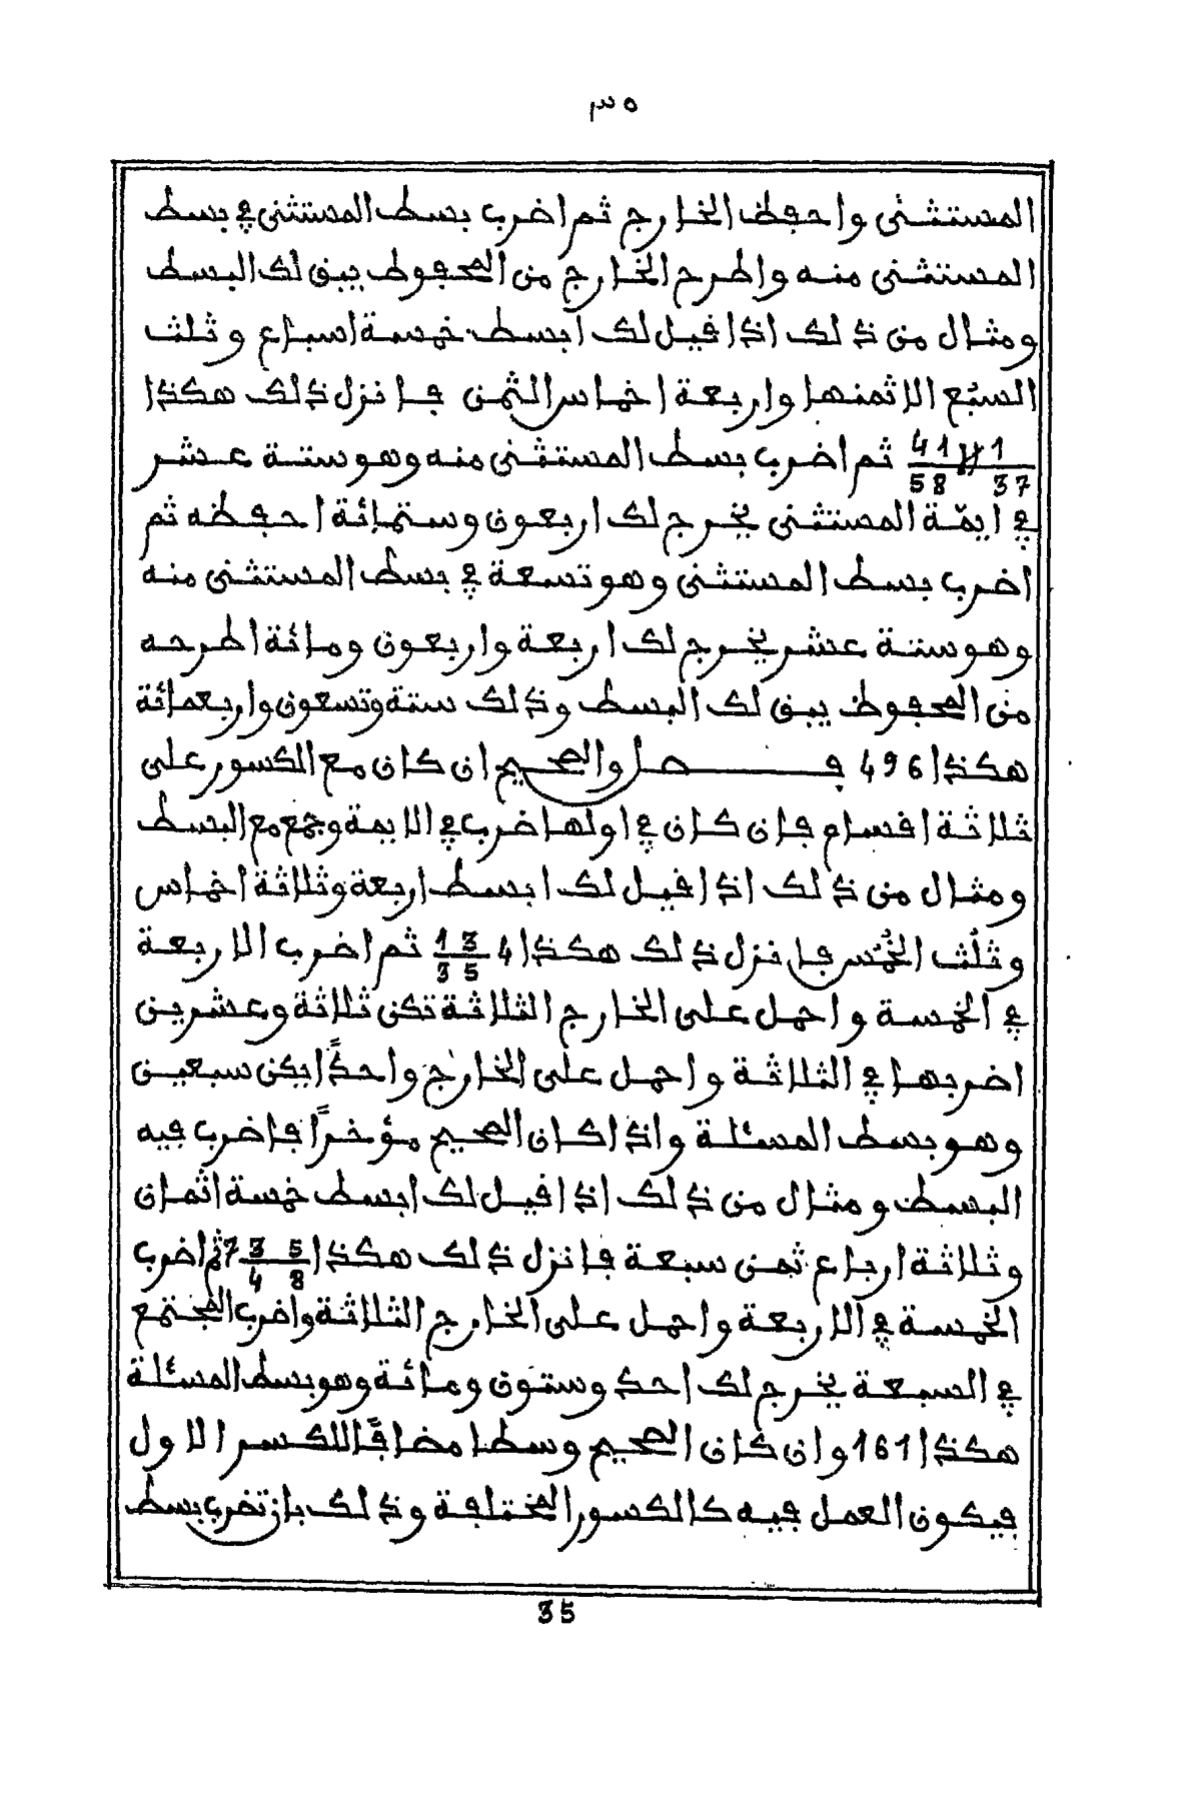 ٣٥
المستثنى واحفظ الخارج ثم اضرب بسط المستثنى في بسط
المستثنى منه واطرح الخارج من المحفوظ يبق لك البسط
ومثال من ذلك اذا قيل لك ابسط خمسة اسباع وثلث
السبُع الا ثمنها واربعة اخماس الثمن فانزل ذلك هكذا
41/58 \\ 1/37 ثم اضرب بسط المستثنى منه وهو ستة عشر
في ايمّة المستثنى يخرج لك اربعون وستمائة احفظه ثم
اضرب بسط المستثنى وهو تسعة في بسط المستثنى منه
وهو ستة عشر يخرج لك اربعة واربعون ومائة اطرحه
من المحفوظ يبق لك البسط وذلك ستة وتسعون واربعمائة
هكذا 496 فصل والصحيح ان كان مع الكسور على
ثلاثة اقسام فإن كان في اولها اضرب في الايمة وجمع مع البسط
ومثال من ذلك اذا قيل لك ابسط اربعة وثلاثة اخماس
وثلُث الخُمُس فانزل ذلك هكذا 4 13/35 ثم اضرب الاربعة
في الخمسة واحمل على الخارج الثلاثة تكن ثلاثة وعشرين
اضربها في الثلاثة واحمل على الخارج واحدًا يكن سبعين
وهو بسط المسئلة واذا كان الصحيح مؤخرًا فاضرب فيه
البسط ومثال من ذلك اذا قيل لك ابسط خمسة اثمان
وثلاثة ارباع ثمن سبعة فانزل ذلك هكذا 7 35/48 ثم اضرب
الخمسة في الاربعة واحمل على الخارج الثلاثة واضرب المجتمع
في السبعة يخرج لك احد وستون ومائة وهو بسط المسئلة
هكذا 161 وان كان الصحيح وسطا مضافًا للكسر الاول
فيكون العمل فيه كالكسور المختلفة وذلك بان تضرب بسط
35